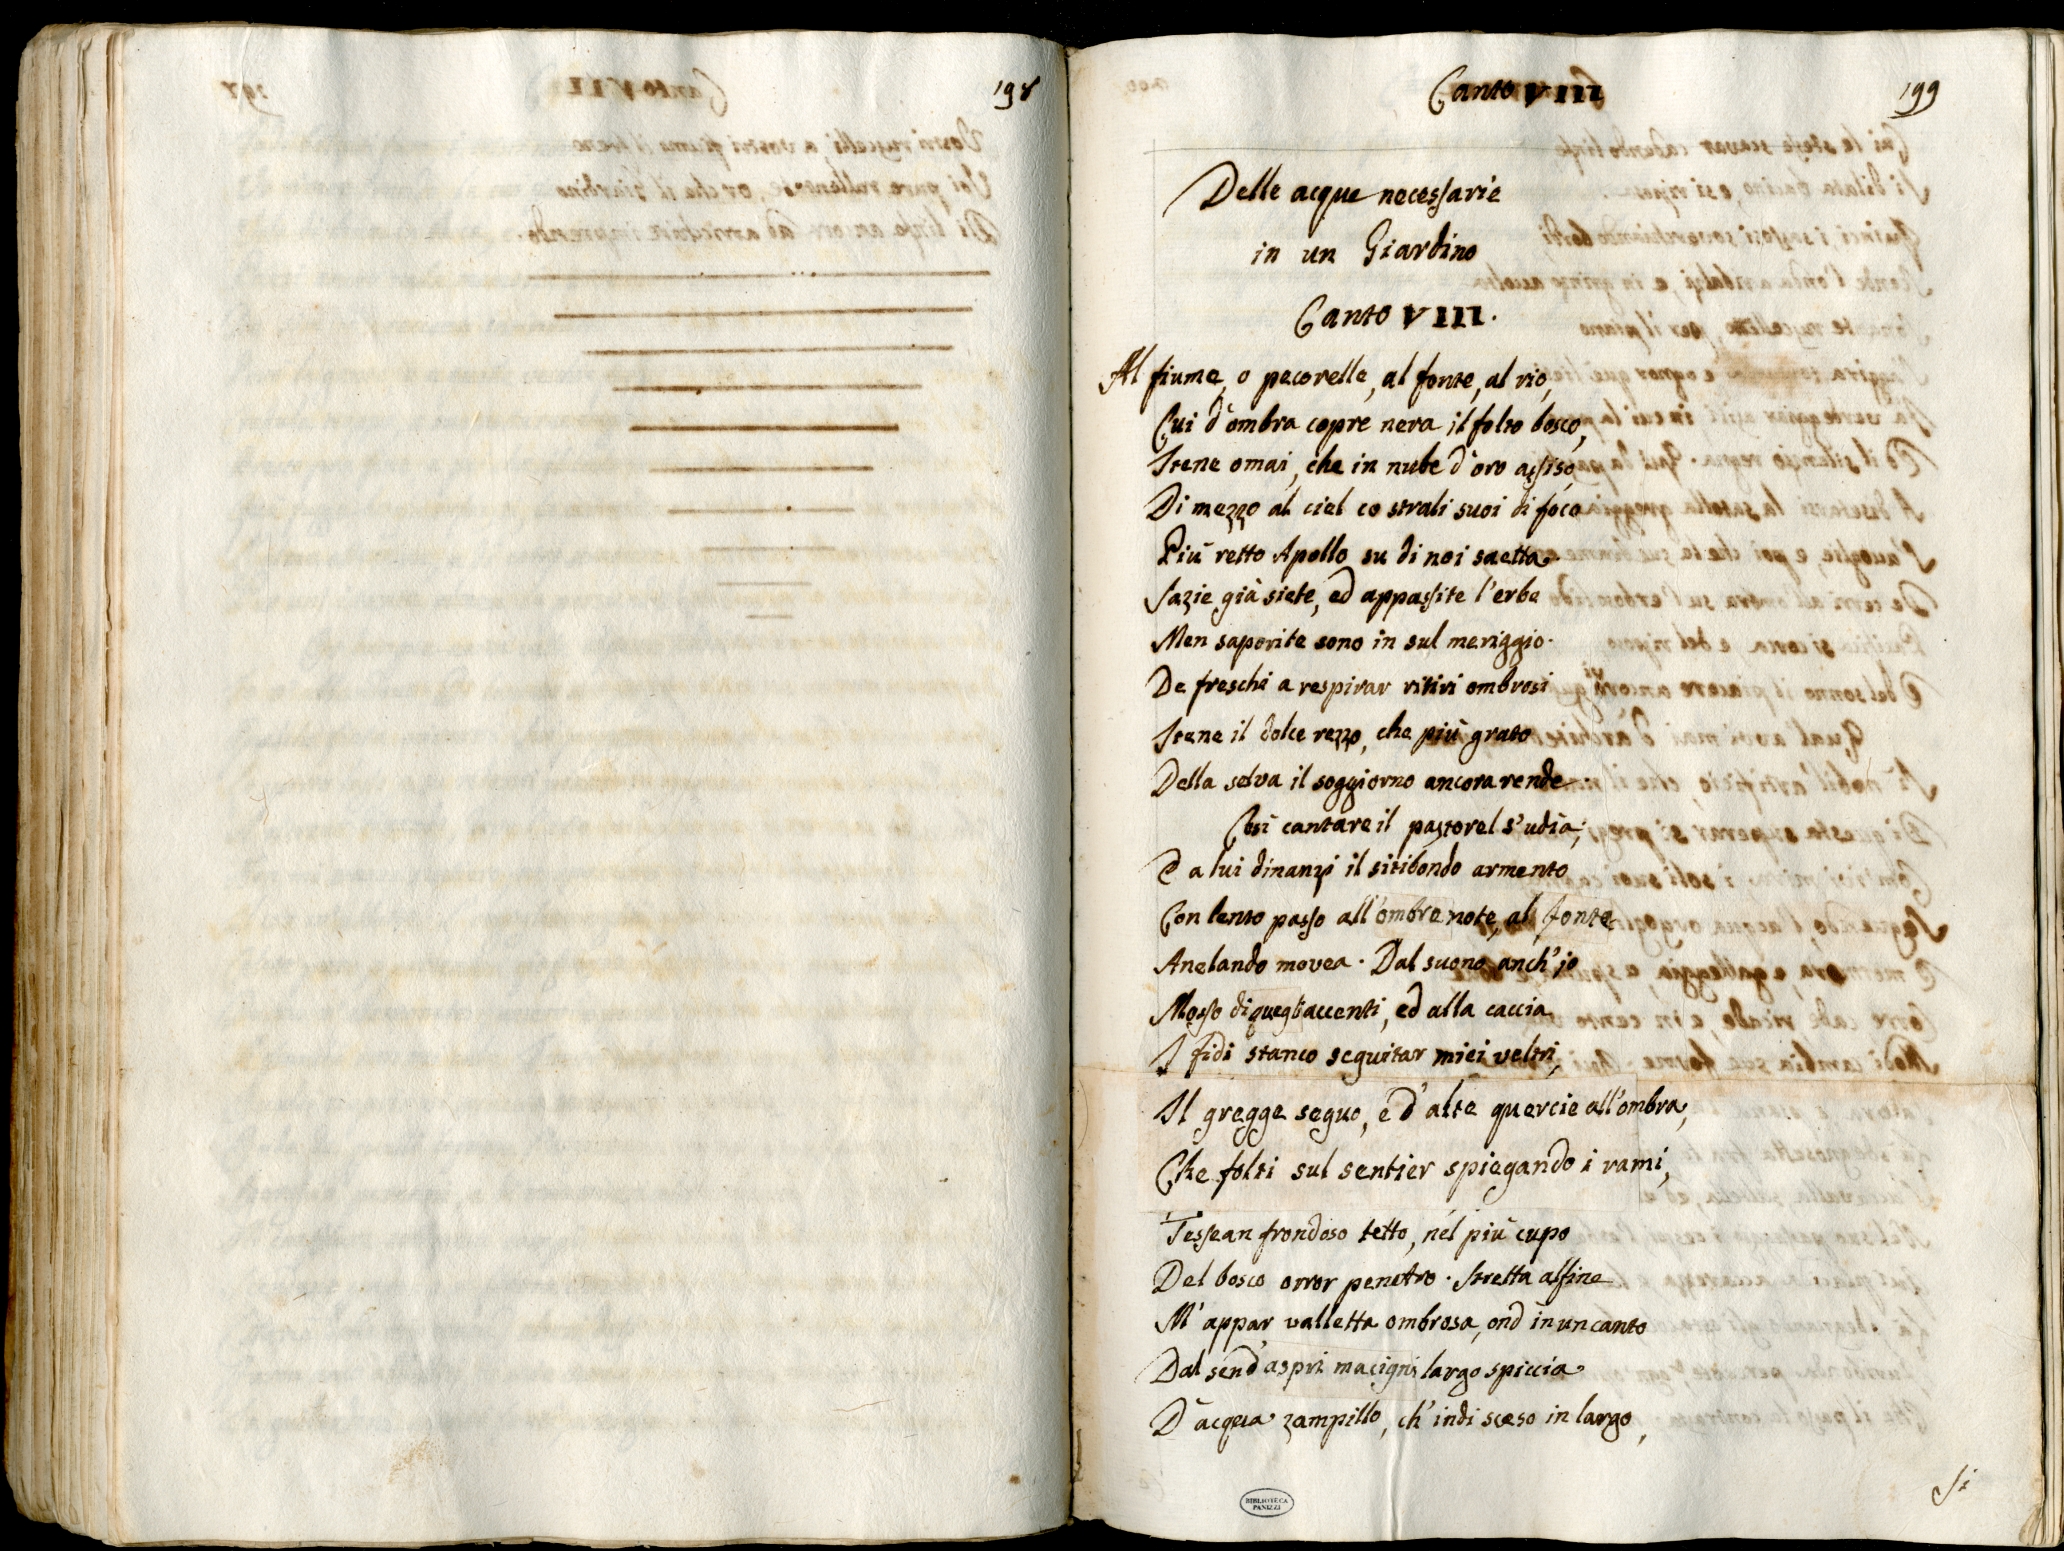 198
Canto VIII
199
Delle acque necessarie
in un Giardino
Canto VIII.
Al fiume, o pecorelle, al fonte, al rio,
Cui d'ombra copre nera il folto bosco,
Itene omai, che in nube d'oro assiso
Di mezzo al ciel co strali suoi di foco
Più retto Apollo su di noi saetta.
Sazie già siete, ed appassite l'erbe
Men saporite sono in sul meriggio.
De freschi a respirar ritiri ombrosi
Itene il dolce rezzo, che più grato
Della selva il soggiorno ancora rende.
Così cantare il pastorel s'udìa;
E a lui dinanzi il sitibondo armento
Con lento passo all'ombre note, al fonte
Anelando movea. Dal suono anch'jo
Mosso di quegli accenti, ed alla caccia
I fidi stanco seguitar miei veltri,
Il gregge seguo, e d'alte quercie all'ombra,
Che folti sul sentier spiegando i rami,
Tessean frondoso tetto, nel più cupo
Del bosco orror penetro. Stretta alfine
M'appar valletta ombrosa, ond' in un canto
Dal sen d'aspri macigni largo spiccia
D'acqua zampillo, ch'indi sceso in largo,
Si
BIBLIOTECA
PANIZZI